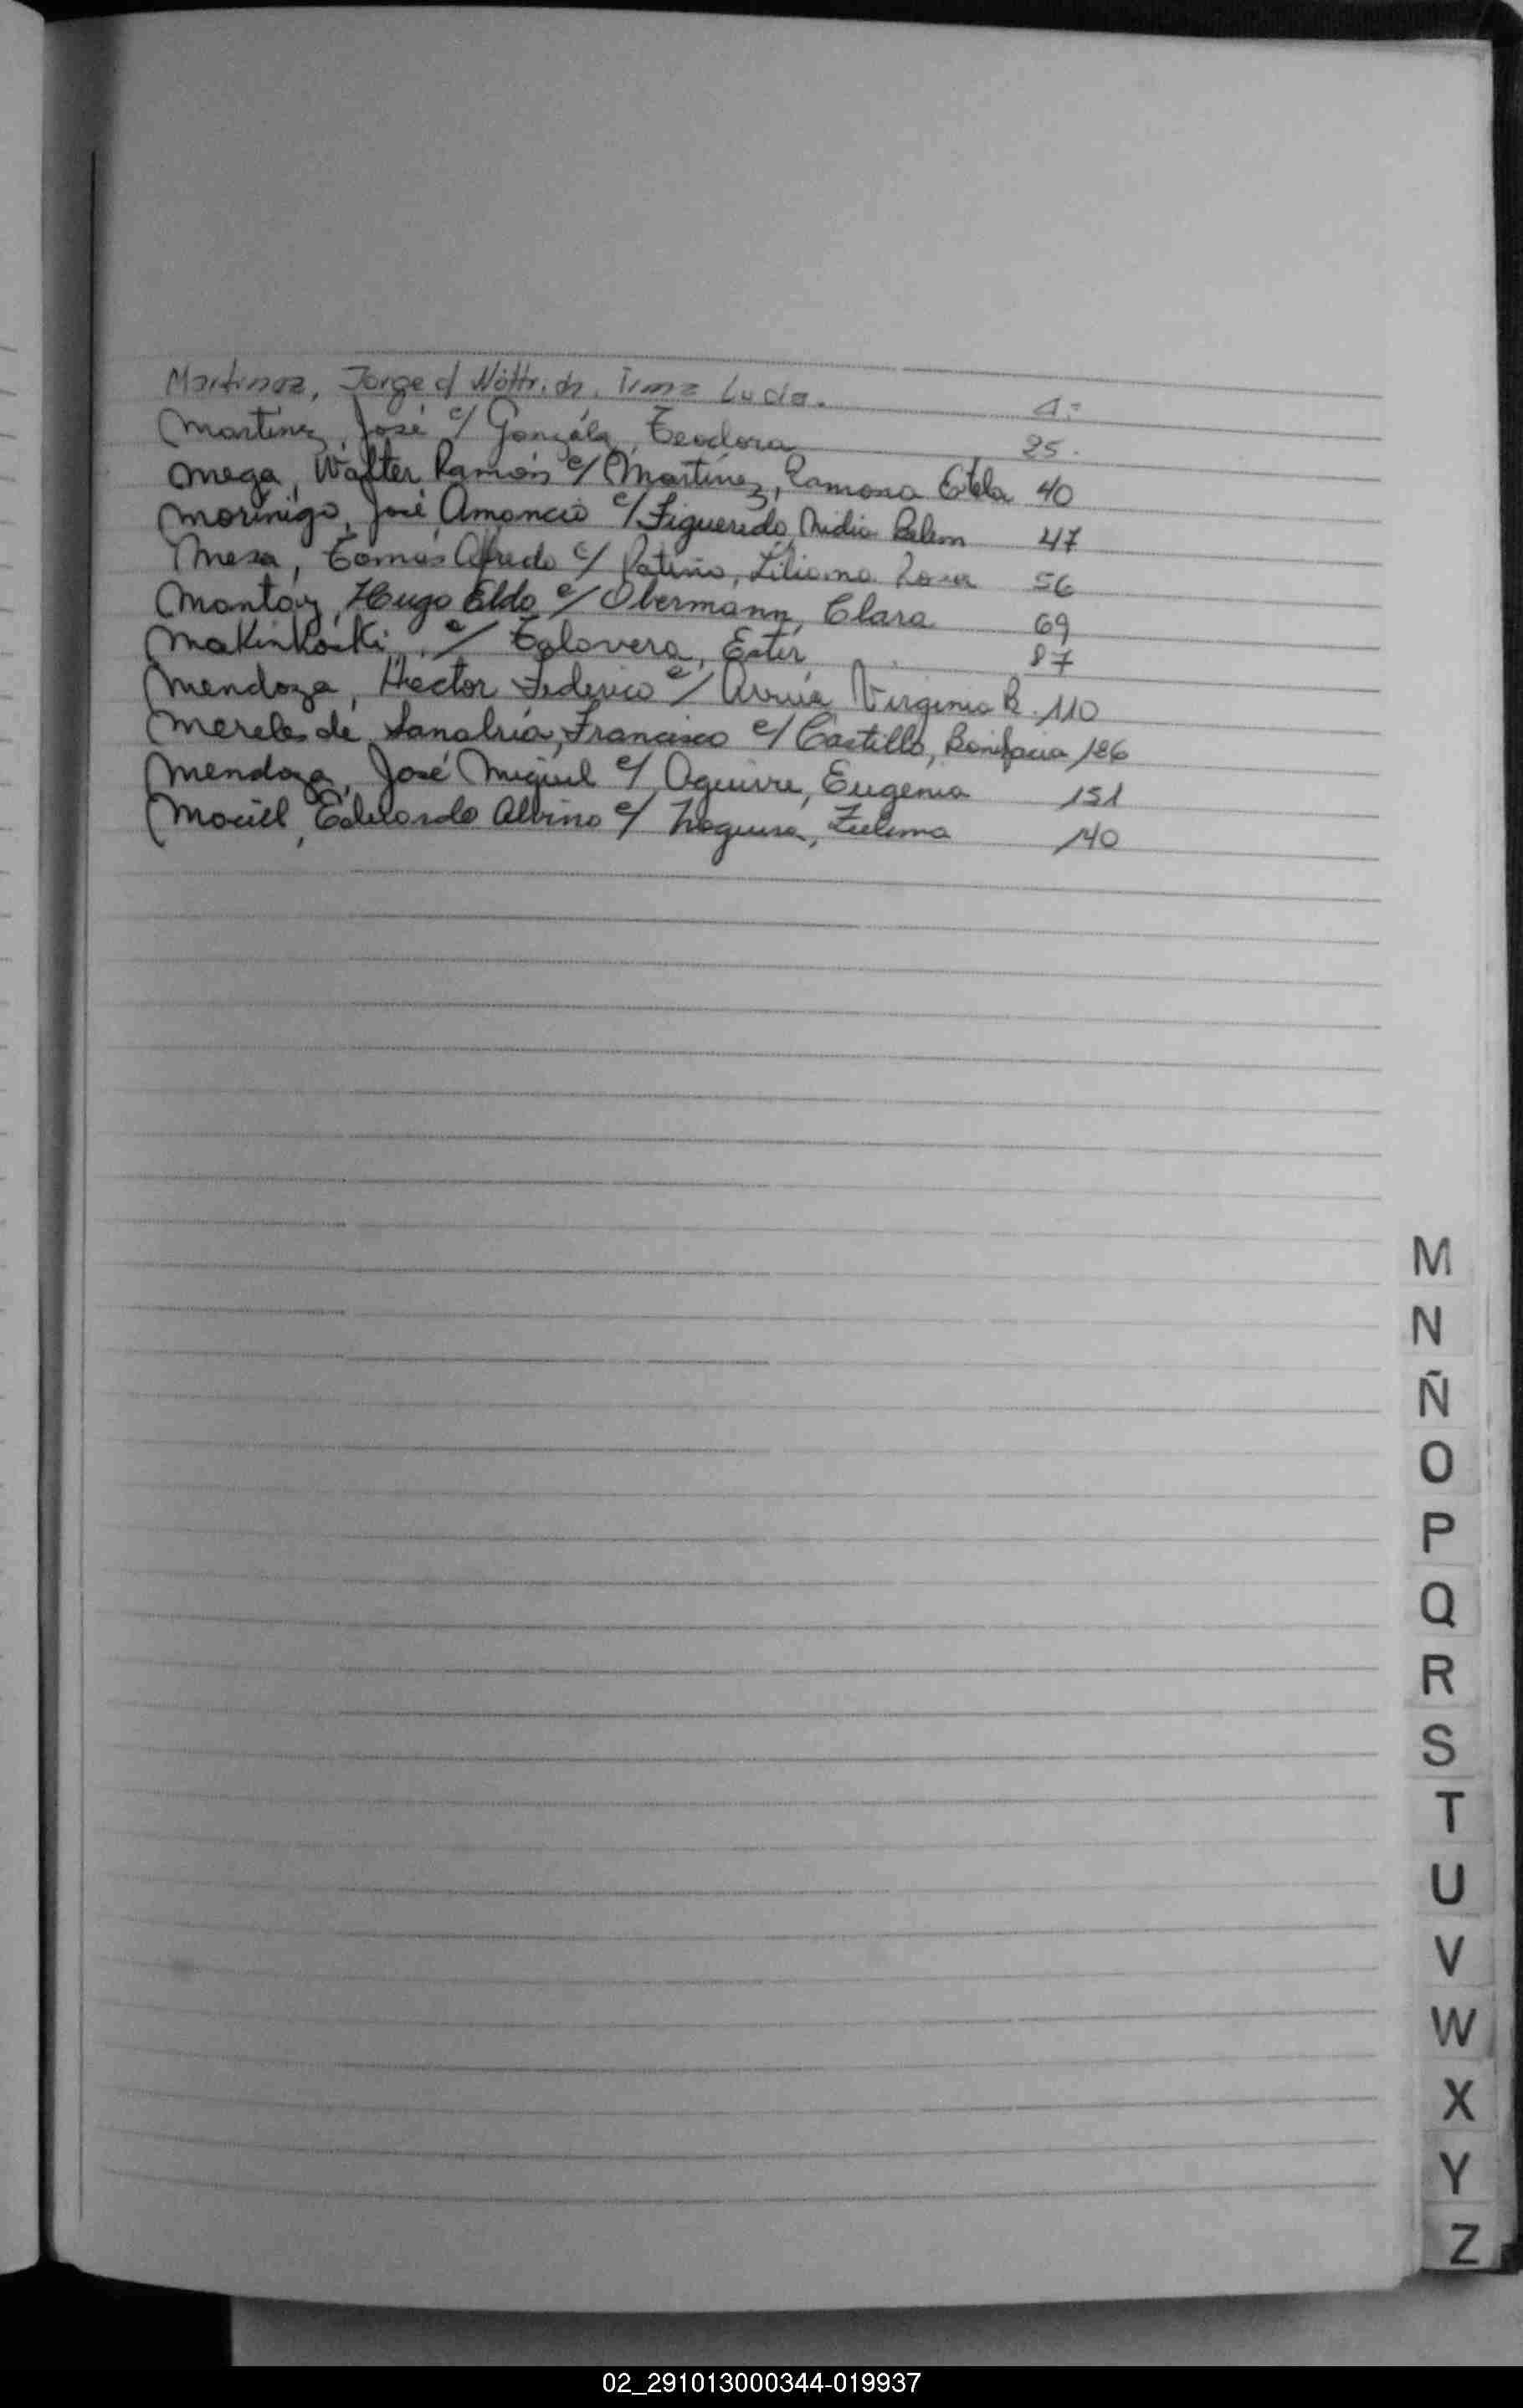 Martinez, Jorge c/ Nöttrich, Irma Lucia. 1.-
Martínez, José c/ Gonzáles, Teodora 25.
Mega, Walter Ramón c/ Martínez, Ramona Estela 40
Morinigo, José Amancio c/ Figueredo, Nidia Belem 47
Mesa, Tomás Alfredo c/ Patiño, Liliana Rosa 56
Montoy, Hugo Eldo c/ Obermann, Clara 69
Makinkoski, c/ Talovera, Ester 87
Mendoza, Hector Federico c/ Virginia R. 110
Mereles de Sanabria, Francisco c/ Castillo, Bonifacia 126
Mendoza, José Miguel c/ Aguirre, Eugenia 151
Maciel, Eduardo Albino c/ Noguera, Zulema 140
M
N
Ñ
O
P
Q
R
S
T
U
V
W
X
Y
Z
02_291013000344-019937